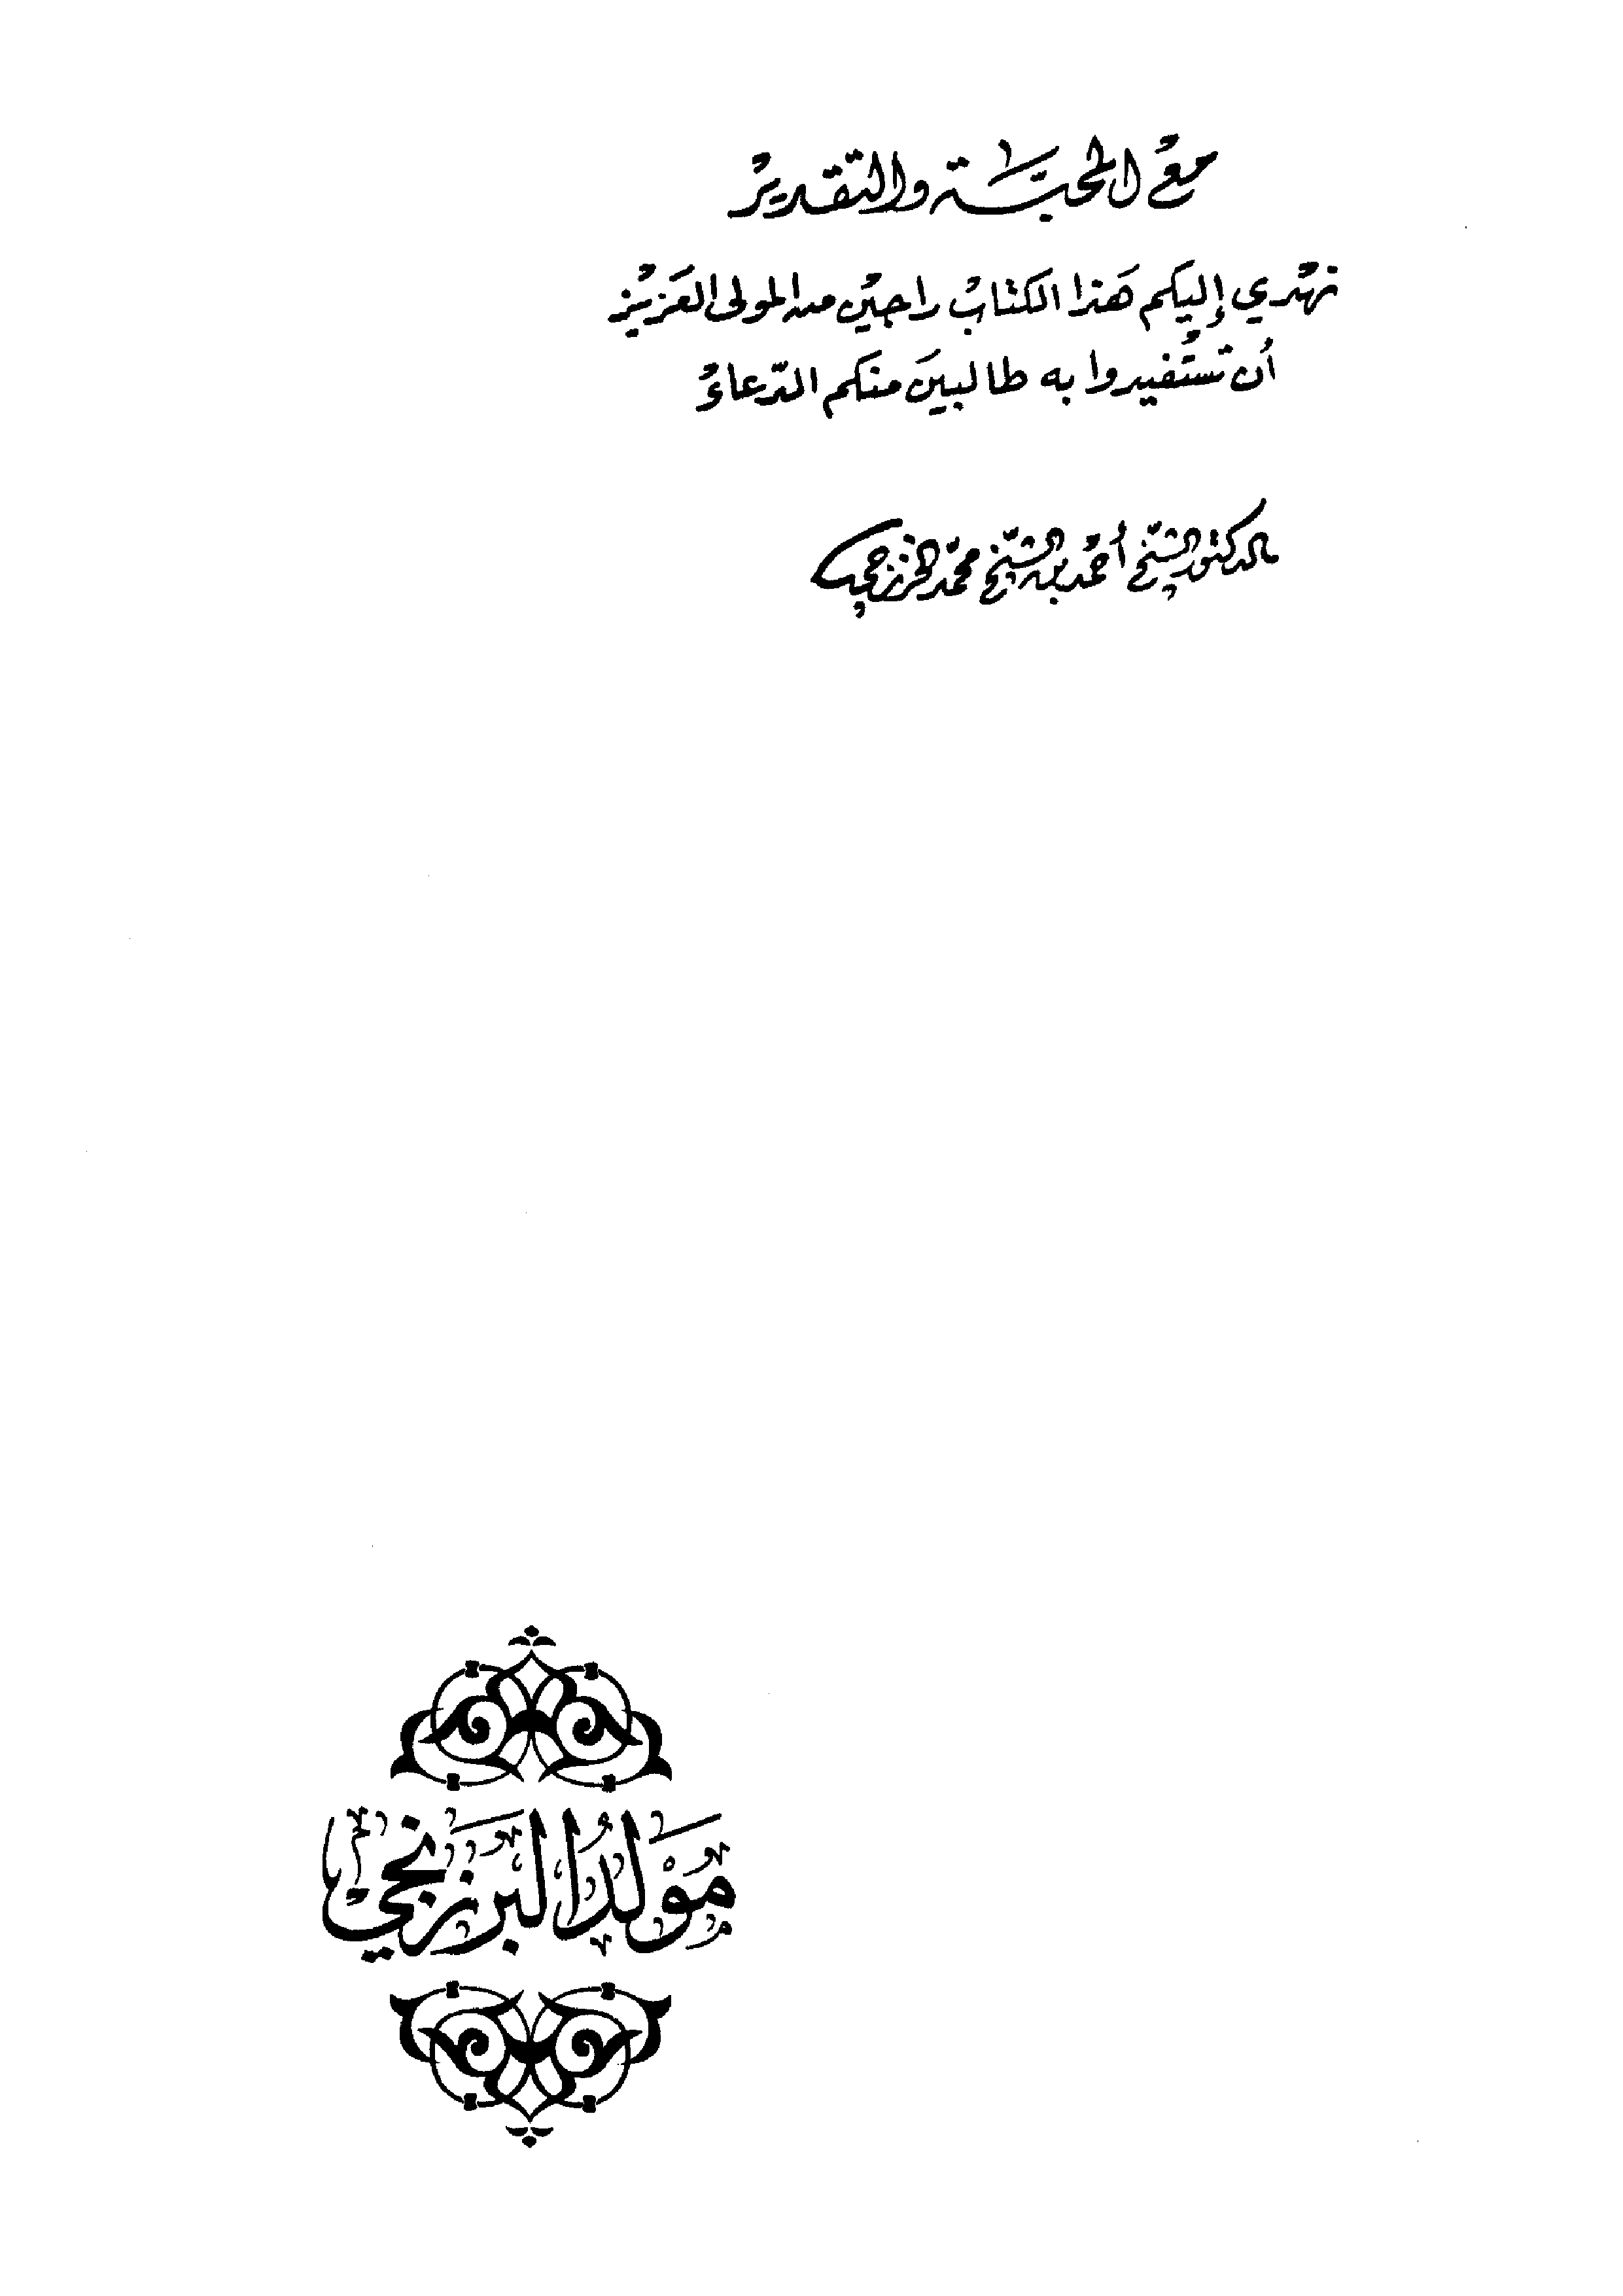 مع المحبّة والتقدير
نهدي إليكم هذا الكتاب راجين من المولى العزيز
أن تستفيدوا به طالبين منكم الدّعاء
الدكتور الشيخ أحمد بن الشيخ محمّد الخزرجي
مَوْلِدُ البَرزَنْجي